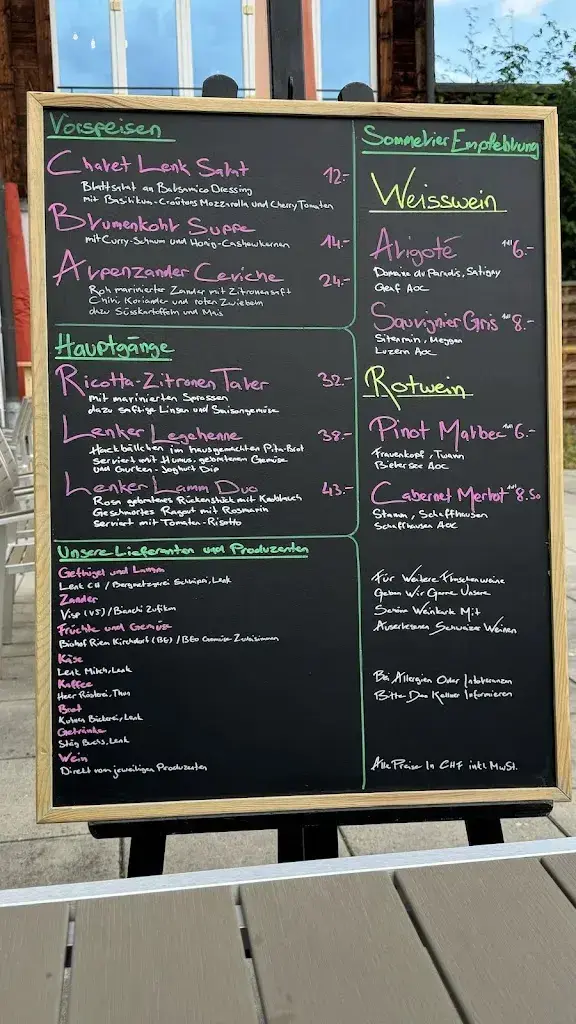 Vorspeisen
Chalet Lenk Salat 12.-
Blattsalat an Balsamico Dressing
mit Basilikum-Croûtons Mozzarella und Cherry Tomaten
Blumenkohl Suppe 14.-
mit Curry-Schaum und Honig-Cashewkernen
Alpenzander Ceviche 24.-
Roh marinierter Zander mit Zitronensaft
Chili, Koriander und roten Zwiebeln
dazu Süsskartoffeln und Mais
Hauptgänge
Ricotta-Zitronen Taler 32.-
mit marinierten Sprossen
dazu saftige Linsen und Saisongemüse
Lenker Legehenne 38.-
Hackbällchen im hausgemachten Pita-Brot
serviert mit Humus, gebratenem Gemüse
und Gurken-Joghurt Dip
Lenker Lamm Duo 43.-
Rosa gebratenes Rückenstück mit Knoblauch
Geschmortes Ragout mit Rosmarin
serviert mit Tomaten-Risotto
Unsere Lieferanten und Produzenten
Geflügel und Lamm
Lenk CH / Bergmetzgerei Lenk
Zander
Visp (VS) / Bianchi Zufikon
Früchte und Gemüse
Biohof Rien Kirchdorf (BE) / BEO Gemüse Zweisimmen
Käse
Lenk Milch, Lenk
Kaffee
Heer Rösterei, Thun
Brot
Bäckerei, Lenk
Getränke
Buchs, Lenk
Wein
Direkt vom jeweiligen Produzenten
Sommelier Empfehlung
Weisswein
Aligoté 6.-
Domaine du Paradis, Satigny
Genf AOC
Sauvignier Gris 8.-
Sitenrain, Meggen
Luzern AOC
Rotwein
Pinot Malbec 6.-
Frauenkopf, Twann
Bielersee AOC
Cabernet Merlot 8.50
Stamm, Schaffhausen
Schaffhausen AOC
Für Weitere Flaschenweine
Geben Wir Gerne Unsere
Schöne Weinkarte Mit
Auserlesenen Schweizer Weinen
Bei Allergien Oder Intoleranzen
Bitte Den Kellner Informieren
Alle Preise In CHF inkl. MwSt.